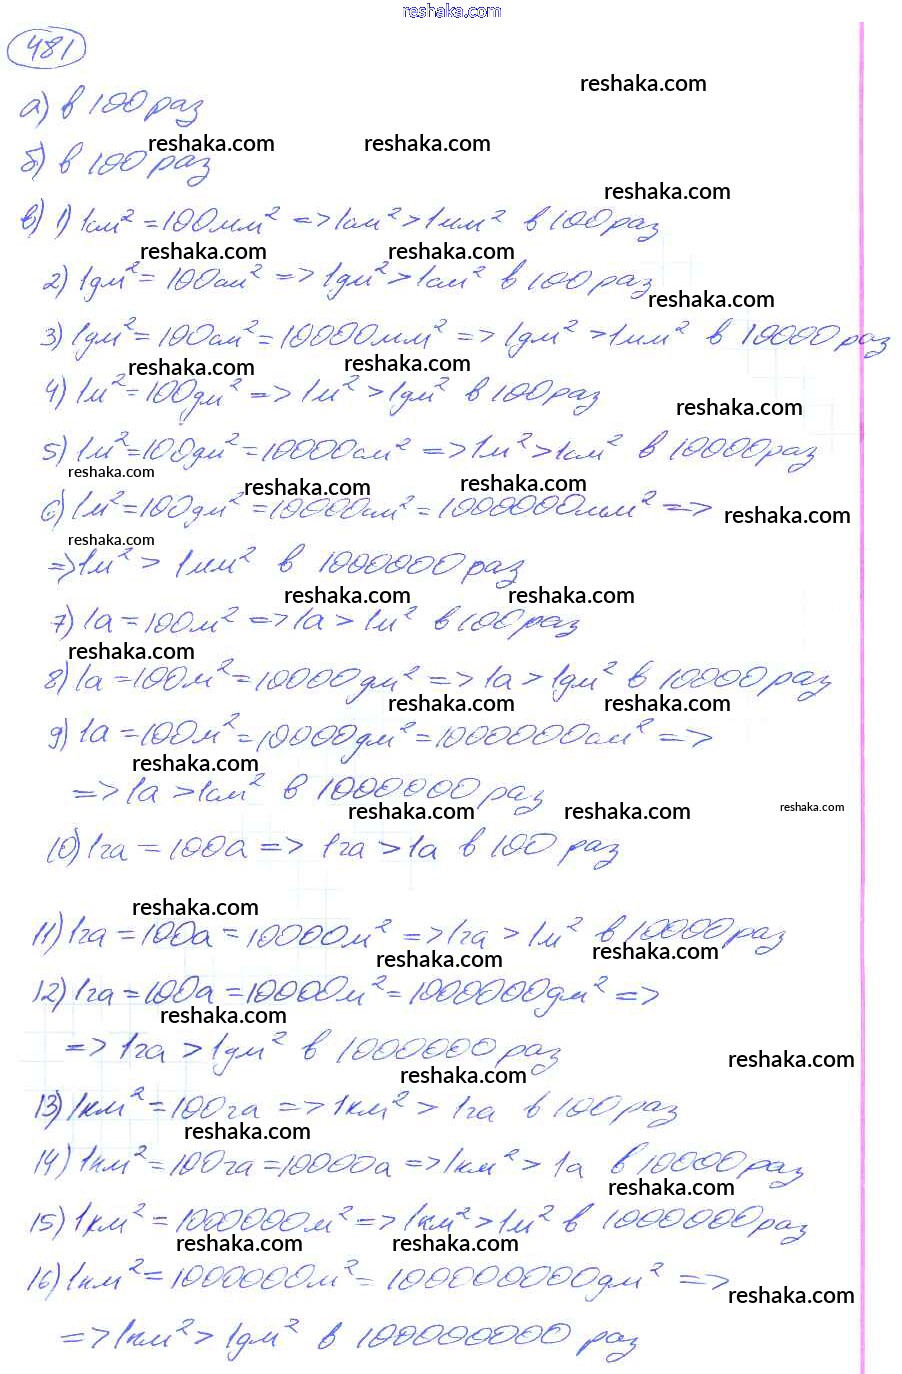 reshaka.com
481
reshaka.com
а) в 100 раз
reshaka.com reshaka.com
б) в 100 раз
reshaka.com
в) 1) 1см² = 100мм² => 1см² > 1мм² в 100 раз
reshaka.com reshaka.com
2) 1дм² = 100см² => 1дм² > 1см² в 100 раз
reshaka.com
3) 1дм² = 100см² = 10000мм² => 1дм² > 1мм² в 10000 раз
reshaka.com reshaka.com
4) 1м² = 100дм² => 1м² > 1дм² в 100 раз
reshaka.com
5) 1м² = 100дм² = 10000см² => 1м² > 1см² в 10000 раз
reshaka.com reshaka.com reshaka.com
6) 1м² = 100дм² = 10000см² = 1000000мм² =>
reshaka.com reshaka.com
=> 1м² > 1мм² в 1000000 раз
reshaka.com reshaka.com
7) 1а = 100м² => 1а > 1м² в 100 раз
reshaka.com
8) 1а = 100м² = 10000дм² => 1а > 1дм² в 10000 раз
reshaka.com reshaka.com
9) 1а = 100м² = 10000дм² = 1000000см² =>
reshaka.com
=> 1а > 1см² в 1000000 раз
reshaka.com reshaka.com reshaka.com
10) 1га = 100а => 1га > 1а в 100 раз
reshaka.com
11) 1га = 100а = 10000м² => 1га > 1м² в 10000 раз
reshaka.com reshaka.com
12) 1га = 100а = 10000м² = 1000000дм² =>
reshaka.com
=> 1га > 1дм² в 1000000 раз
reshaka.com reshaka.com
13) 1км² = 100га => 1км² > 1га в 100 раз
reshaka.com
14) 1км² = 100га = 10000а => 1км² > 1а в 10000 раз
reshaka.com
15) 1км² = 1000000м² => 1км² > 1м² в 1000000 раз
reshaka.com reshaka.com
16) 1км² = 1000000м² = 100000000дм² =>
reshaka.com
=> 1км² > 1дм² в 100000000 раз